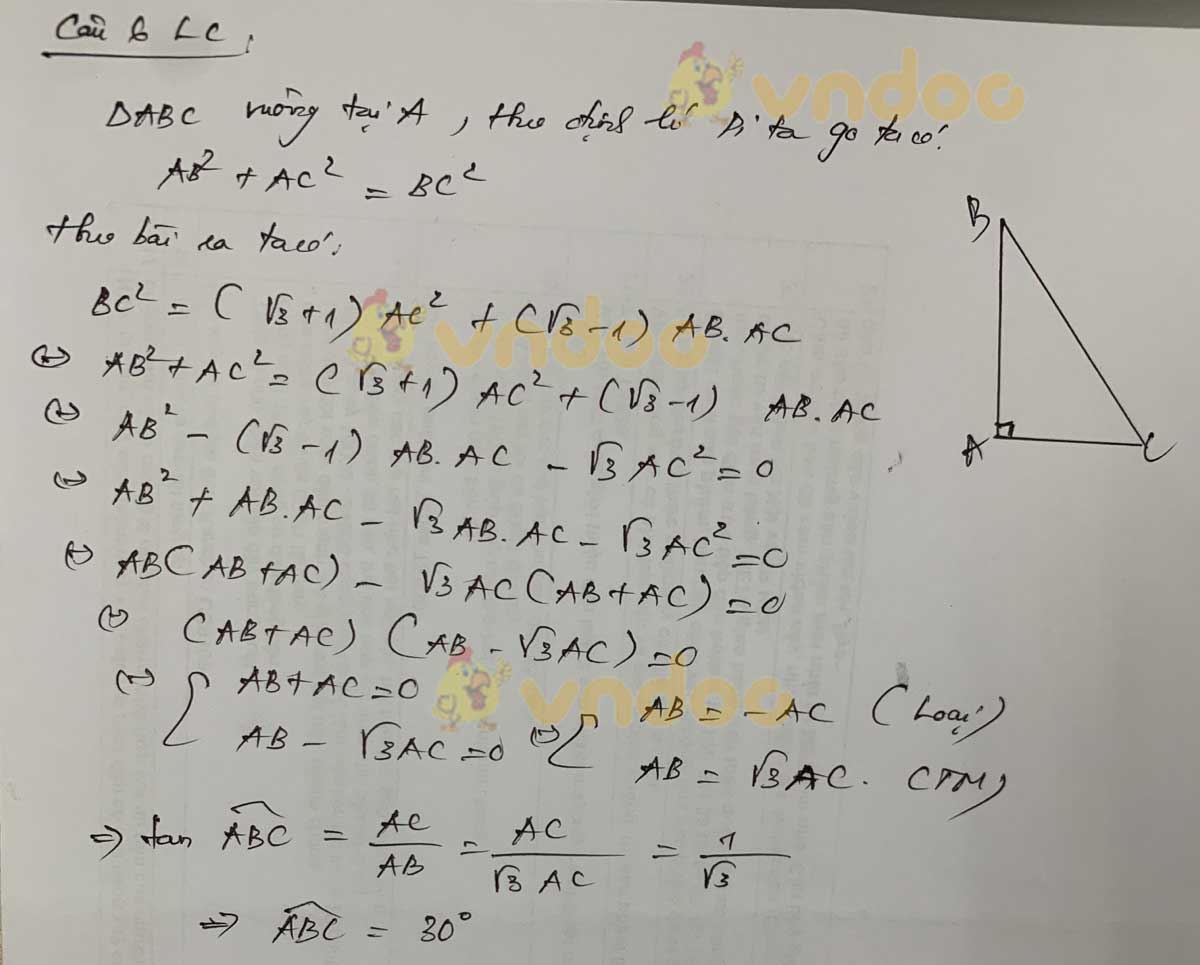 Câu 6 LC,
vndoc
ΔABC vuông tại A, theo định lí Pi ta go ta có:
AB² + AC² = BC²
theo bài ra ta có:
BC² = (√3+1) AC² + (√3-1) AB.AC
vndoc
(↔) AB² + AC² = (√3+1) AC² + (√3-1) AB.AC
(↔) AB² - (√3-1) AB.AC - √3 AC² = 0
(↔) AB² + AB.AC - √3 AB.AC - √3 AC² = 0
(↔) AB(AB+AC) - √3 AC(AB+AC) = 0
(↔) (AB+AC) (AB - √3AC) = 0
vndoc
(↔) [ AB+AC=0 (↔) [ AB = -AC (Loại)
AB - √3AC = 0 AB = √3 AC. (TM)
=> tan ABC = AC/AB = AC/√3 AC = 1/√3
=> ABC = 30°
B
A
C